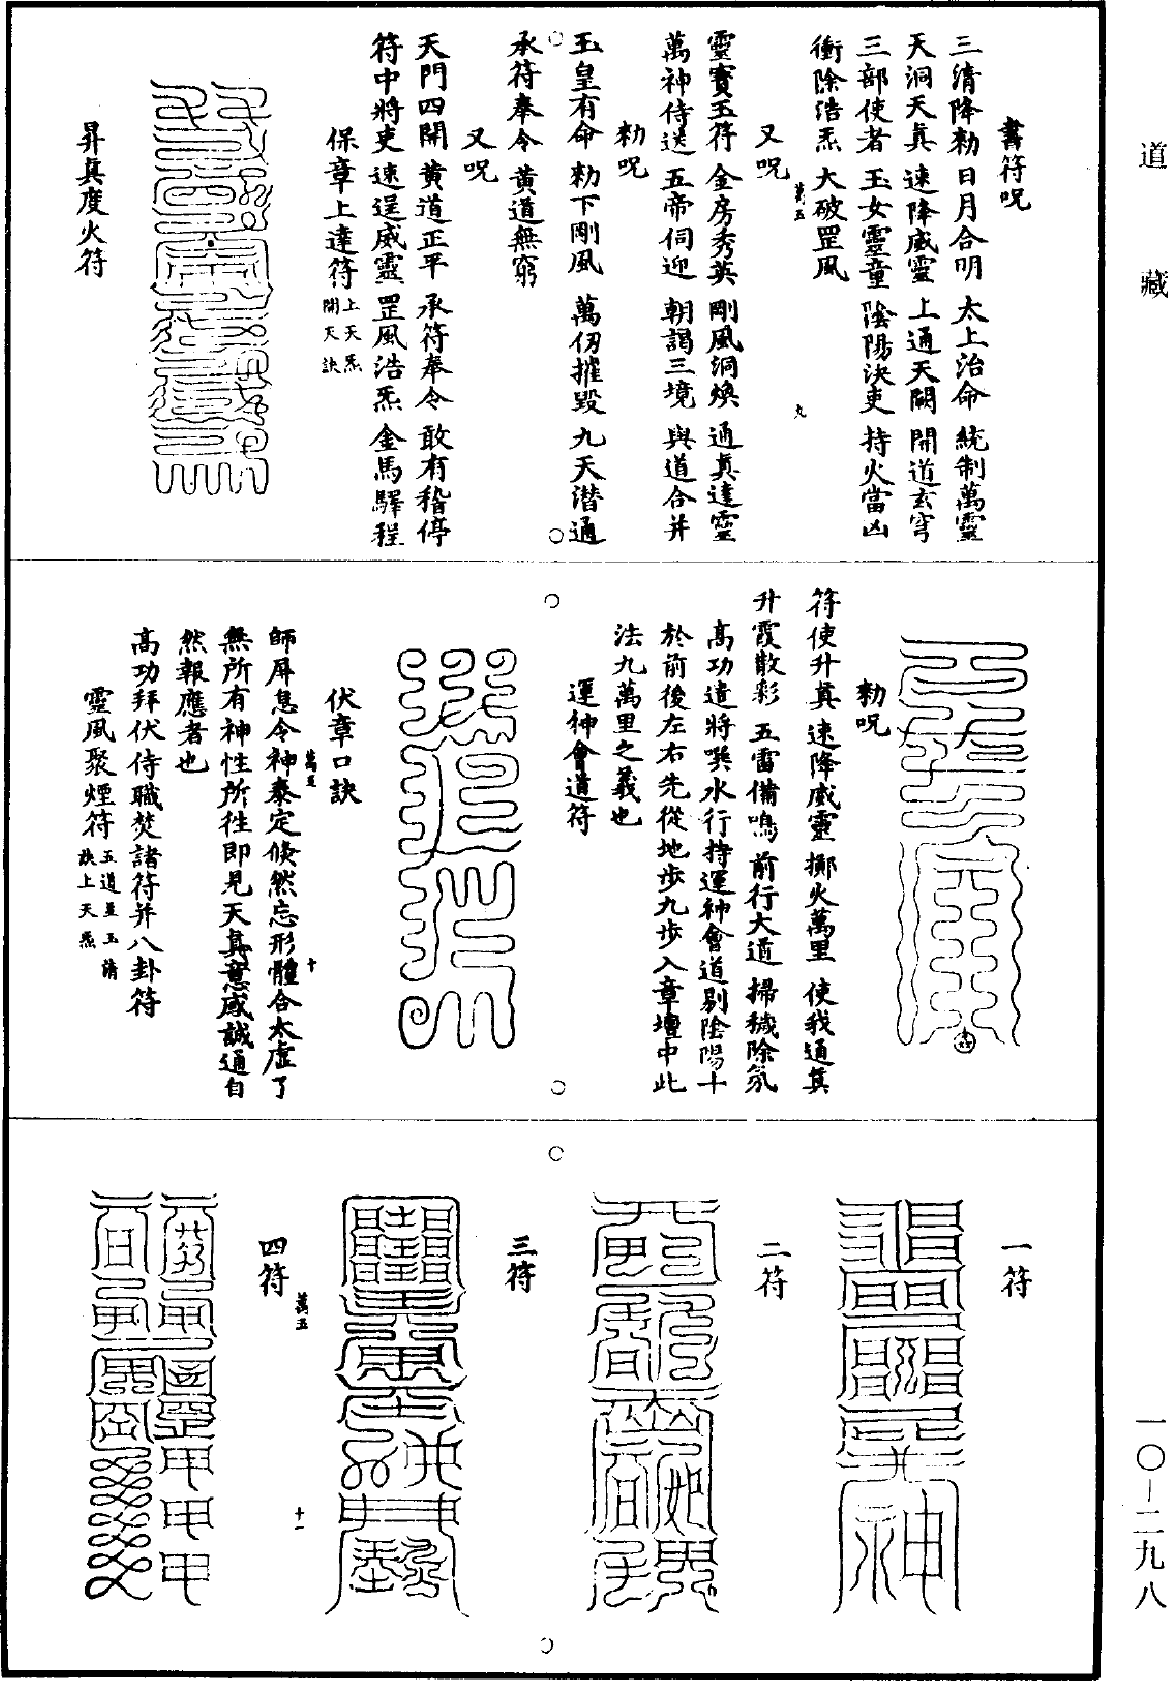 道藏
書符呪
三清降勑 日月合明 太上治命 統制萬靈
天洞天真 速降威靈 上通天闕 開道玄穹
三部使者 玉女靈童 陰陽決吏 持火當凶
衝除浩炁 大破罡風
又呪
萬五
九
靈寶玉符 金房秀英 剛風洞煥 通真達靈
萬神侍送 五帝伺迎 朝謁三境 與道合并
勑呪
玉皇有命 勑下剛風 萬仞摧毀 九天潛通
承符奉令 黃道無窮
又呪
天門四開 黃道正平 承符奉令 敢有稽停
符中將吏 速逞威靈 罡風浩炁 金馬驛程
保章上達符 上天炁
開天訣
昇真度火符
勑呪
符使升真 速降威靈 擲火萬里 使我通真
升霞散彩 五雷備鳴 前行大道 掃穢除氛
高功遣將噀水行持運神會道剔陰陽十
於前後左右先從地步九步入章壇中此
法九萬里之義也
運神會道符
伏章口訣
萬五
十
師屏息令神泰定倏然忘形體合太虛了
無所有神性所徃即見天真意感誠通自
然報應者也
高功拜伏侍職焚諸符并八卦符
靈風聚煙符 五道並玉清
訣上天炁
一符
二符
三符
四符
萬五
十一
一〇－二九八